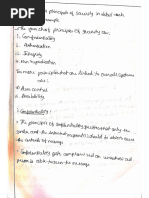 principles of security in detail each
example
The four chief principles of security are:
1. Confidentiality
2. Authentication
3. Integrity
4. Non repudiation
Two more principles that are linked to overall systems
are:
5) Access control
6) Availability
1. Confidentiality:
The principle of confidentiality specifies that only the
sender and the intended recipient(s) should be able to access
the contents of message.
Confidentiality gets compromised if an unauthorized
person is able to access the message